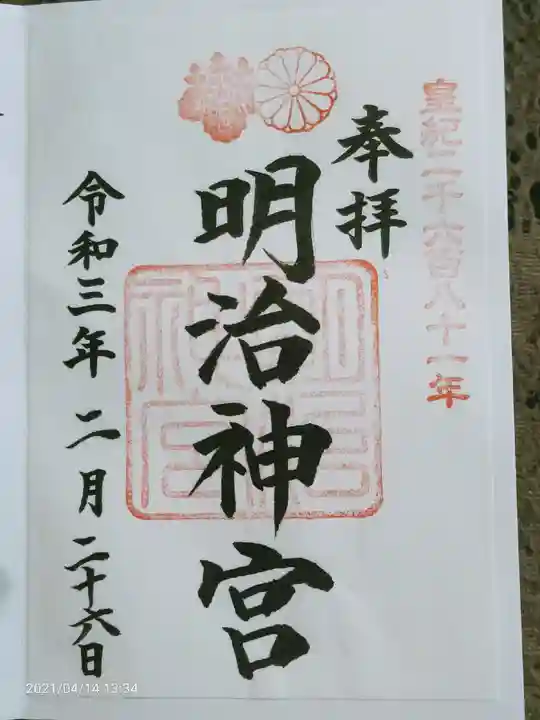 皇紀二千六百八十一年
奉拝
明治神宮
令和三年二月二十六日
2021/04/14 13:34